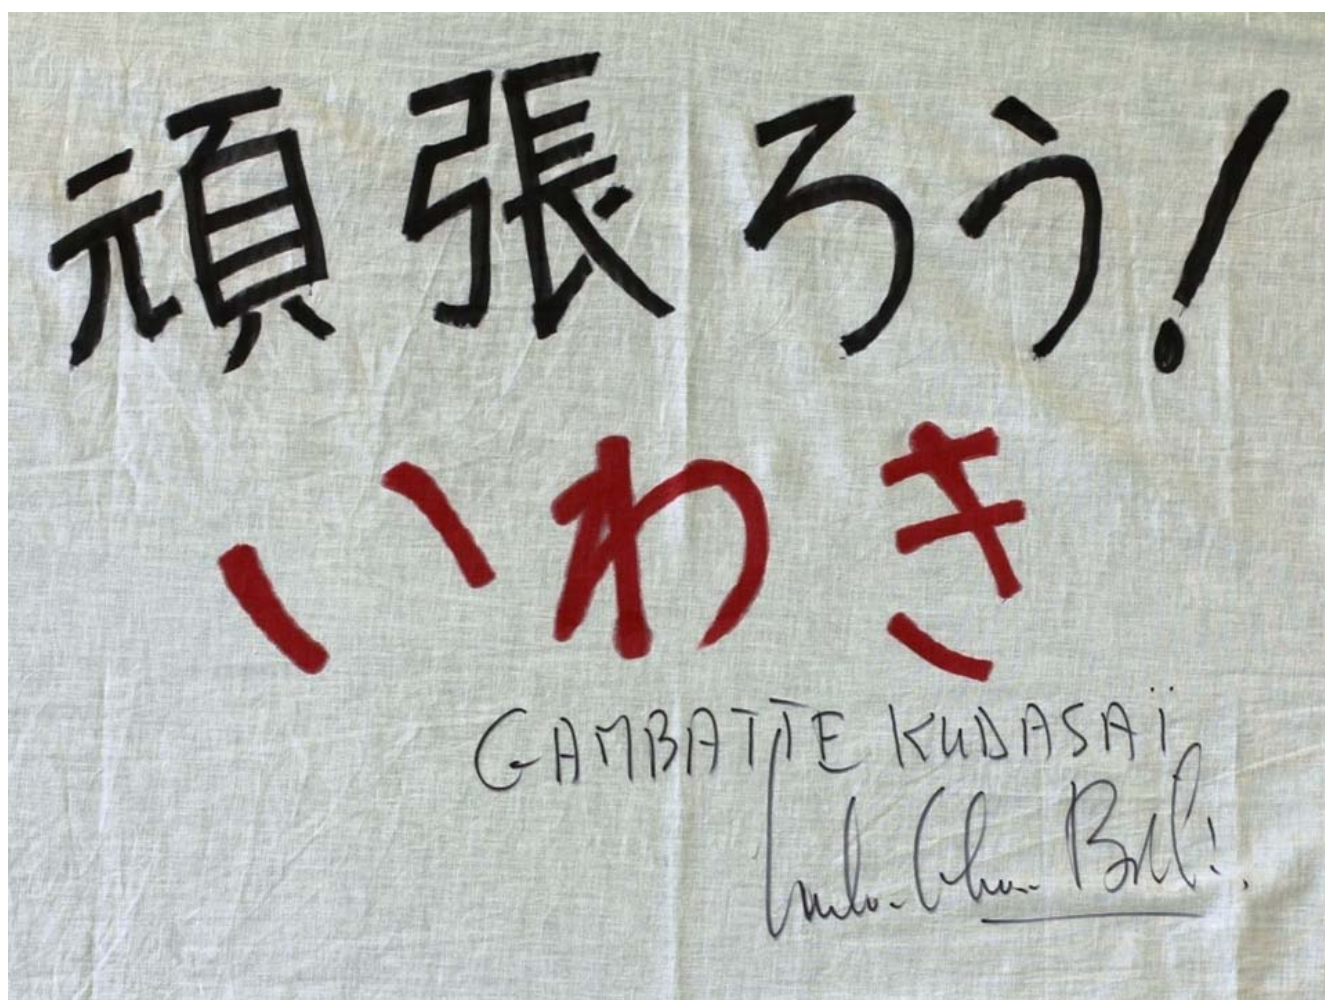 頑張ろう!
いわき
GAMBATTE KUDASAÏ